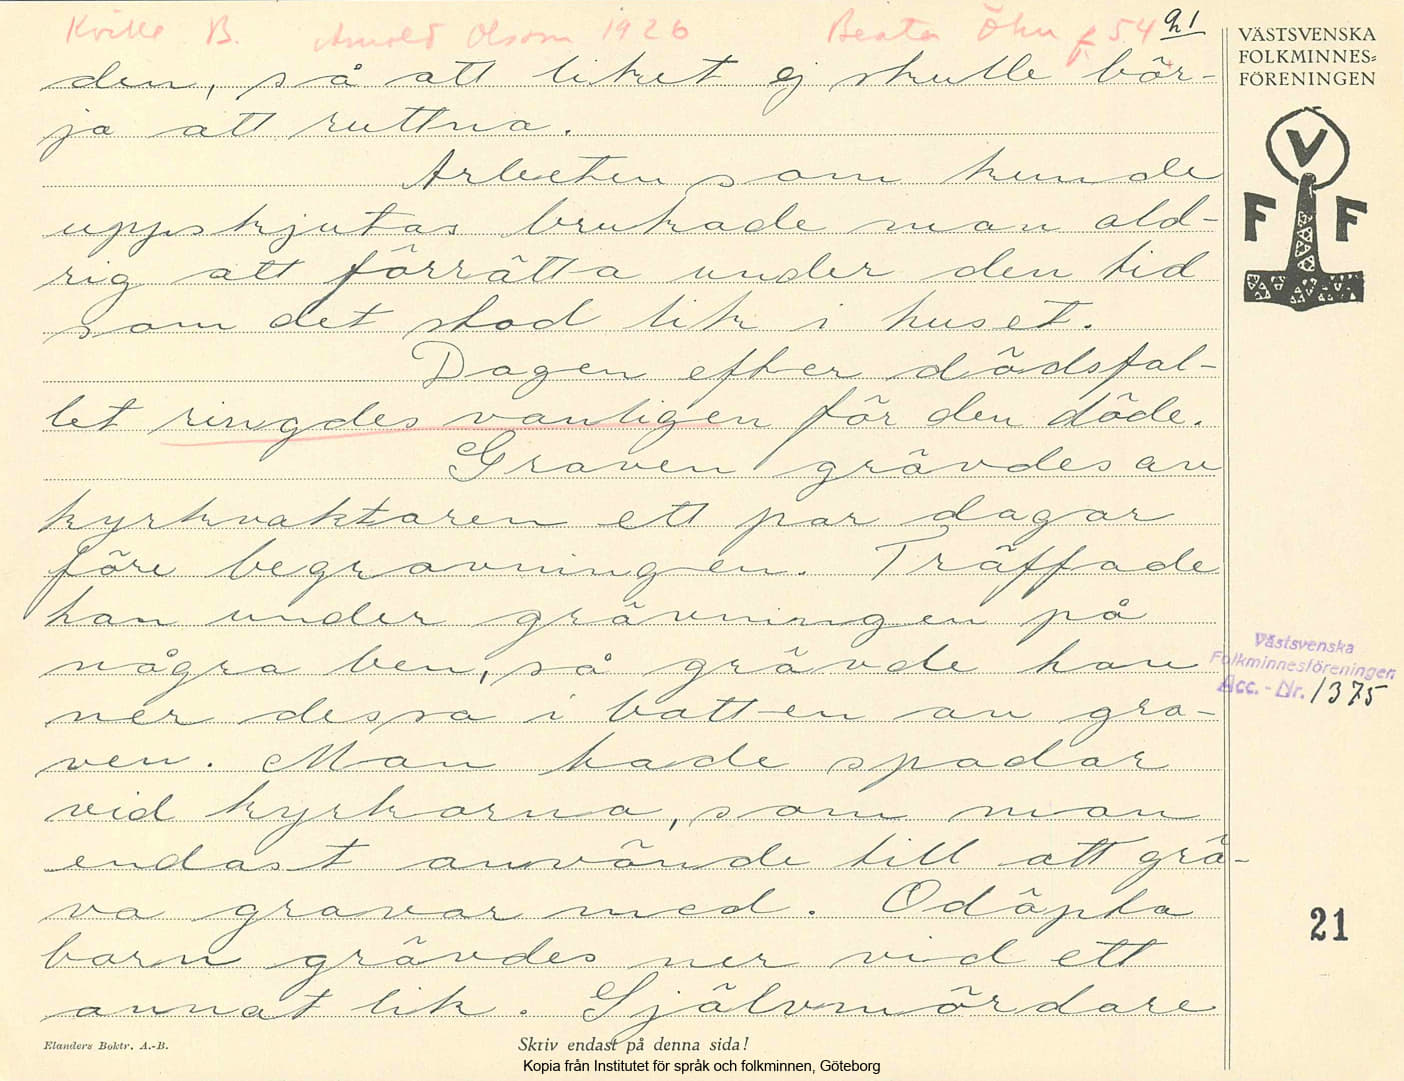 Kville B. Arnold Olsson 1926 Beata Öhn f. 54 21
den, så att liket ej skulle bör-
ja att ruttna.
Arbeten som kunde
uppskjutas brukade man ald-
rig att förrätta under den tid
som det stod lik i huset.
Dagen efter dödsfal-
let ringdes vanligen för den döde.
Graven grävdes av
kyrkvaktaren ett par dagar
före begravningen. Träffade
han under grävningen på
några ben, så grävde han
ner dessa i botten av gra-
ven. Man hade spadar
vid kyrkorna, som man
endast använde till att grä-
va gravar med. Odöpta
barn grävdes ner vid ett
annat lik. Självmördare
VÄSTSVENSKA
FOLKMINNES=
FÖRENINGEN
V
F F
Västsvenska
Folkminnesföreningen
Acc. - Nr. 1375
21
Elanders Boktr. A.-B.
Skriv endast på denna sida!
Kopia från Institutet för språk och folkminnen, Göteborg